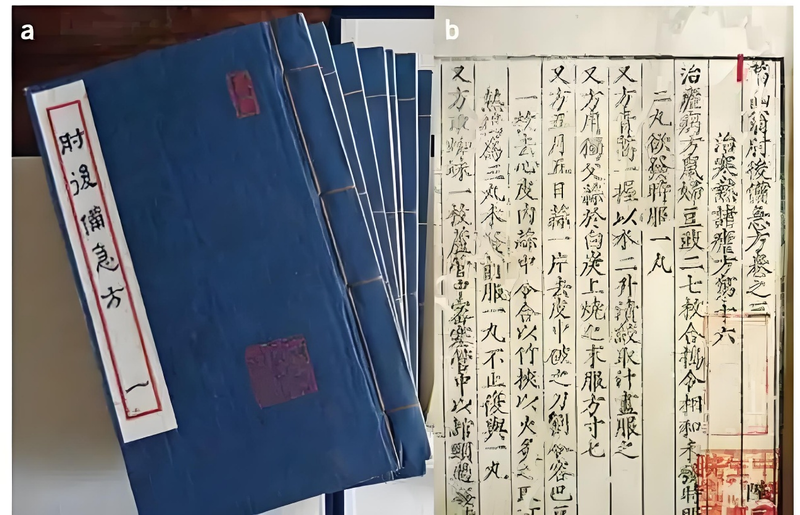 a
肘後備急方
一
b
葛仙翁肘後備急方卷之三
治寒熱諸瘧方第十六
治瘧病方鼠婦豆豉二七枚合擣令相和未發時服
二丸欲發時服一丸
又方青蒿一握以水二升漬絞取汁盡服之
又方用獨父蒜於白炭上燒之末服方寸匕
又方五月五日蒜一片去皮中破之刀割令容巴豆
一枚去心皮內蒜中令合以竹挾以火炙之取可
熱搗為三丸未發前服一丸不止復與一丸
又方取蜘蛛一枚蘆管中密塞管中以綰頸過發